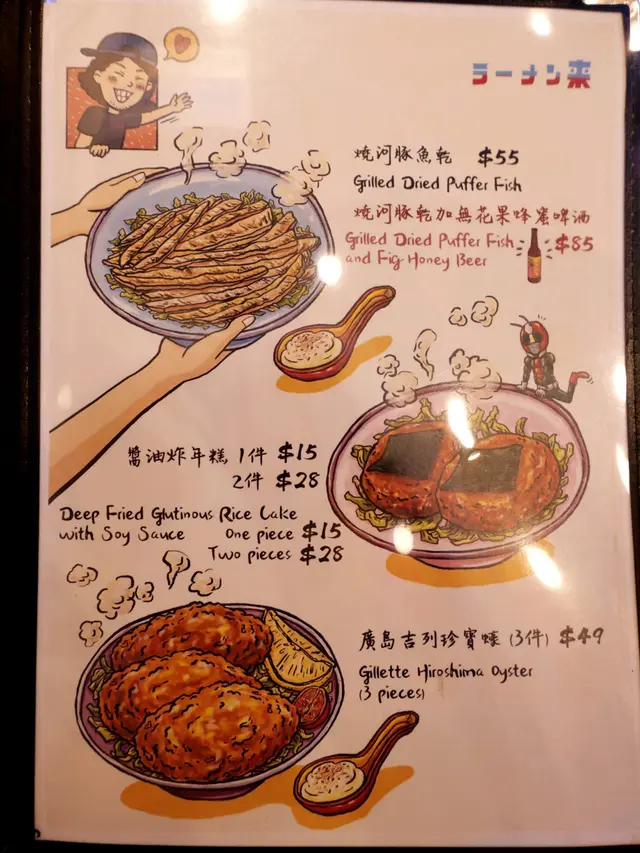 ラーメン来
燒河豚魚乾 $55
Grilled Dried Puffer Fish
燒河豚乾加無花果蜂蜜啤酒
Grilled Dried Puffer Fish $85
and Fig Honey Beer
醬油炸年糕 1件 $15
2件 $28
Deep Fried Glutinous Rice Cake
with Soy Sauce One piece $15
Two pieces $28
廣島吉列珍寶蠔 (3件) $49
Gillette Hiroshima Oyster
(3 pieces)